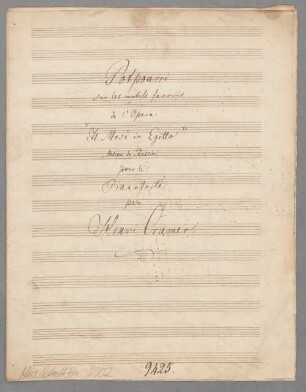 Potpourri
sur les motifs favoris
de l'Opera
"Il Mosè in Egitto"
Musique de Rossini
pour le
Pianoforte
par
Henri Cramer
9425.